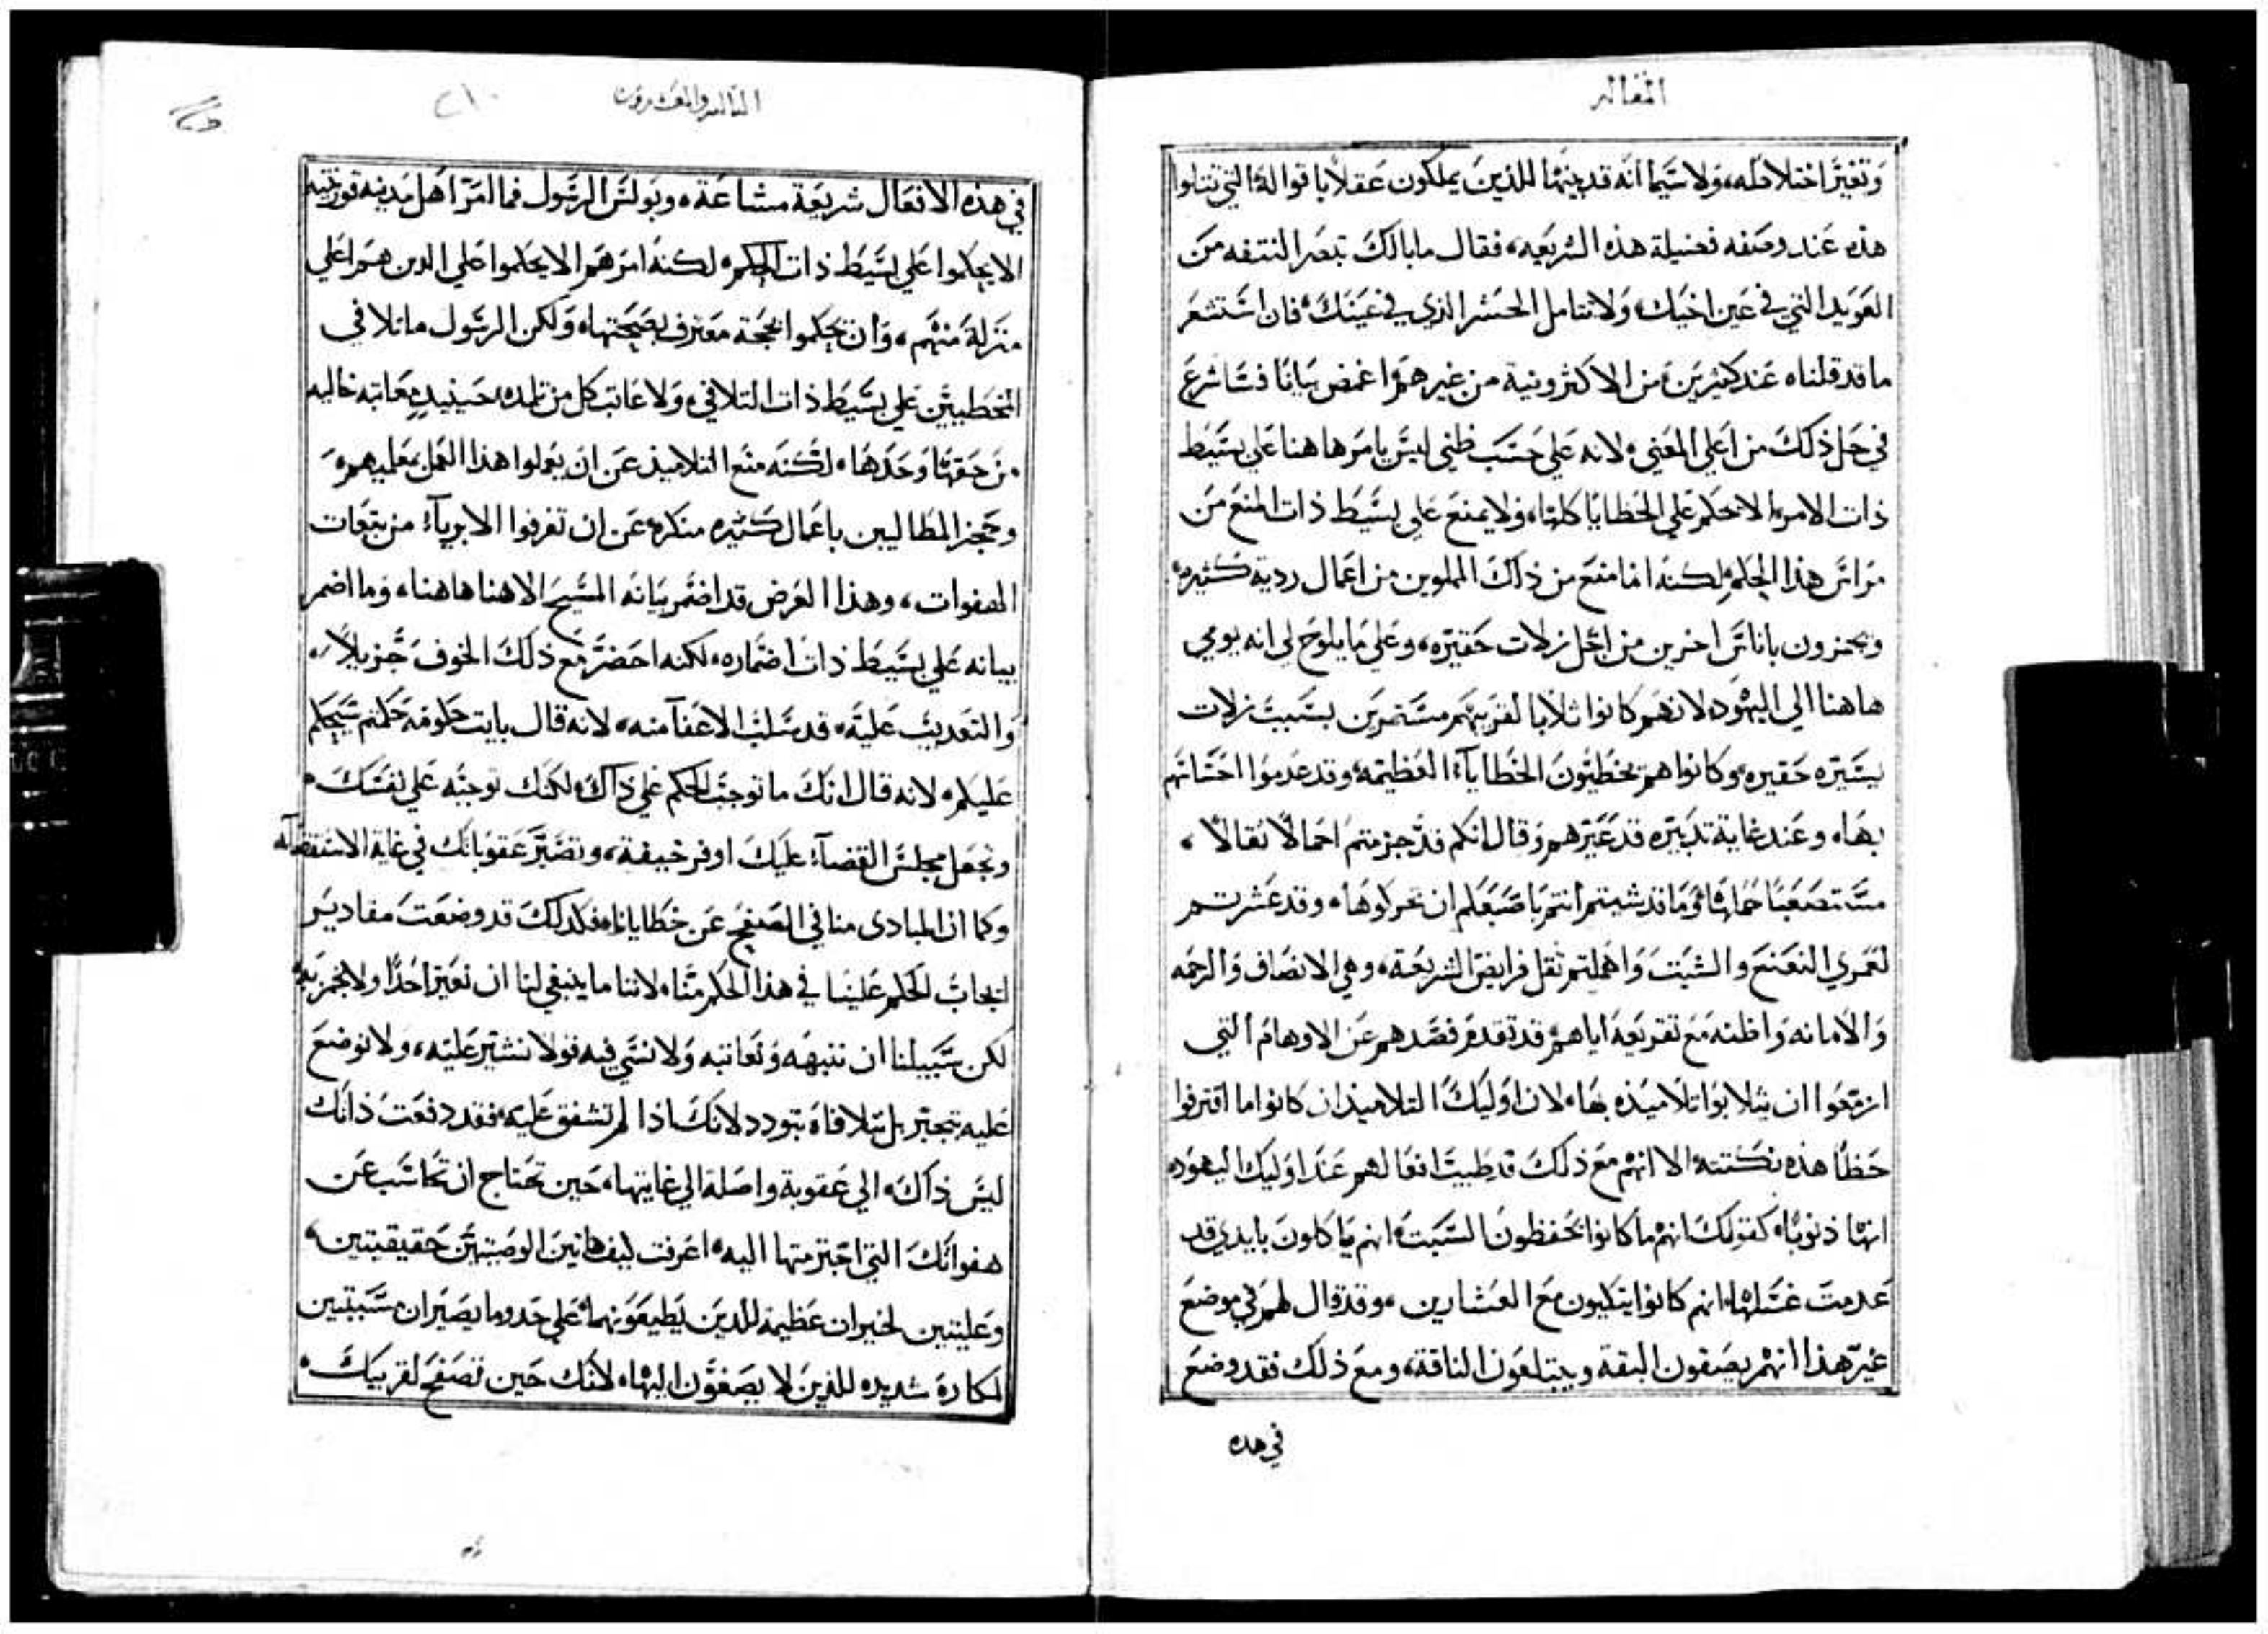 المقالة
وتغيّر اختلافله، ولا سيّما انّه قد بينها للذين يملكون عقلاً باقواله التي تتلوا
هذه عند وصفه فضيلة هذه الشريعه، فقال ما بالك تبصر النتفه من
العويد التي في عين اخيك، ولا تتامل الجسر الذي في عينك، فان استشعر
ما قد قلناه عند كثيرين من الاكثرونية من غيرهم اغمض بيانًا فساشرع
في حل ذلك من اعلي المعني، لانه علي حسب ظني ليس يامرها هنا علي بسيط
ذات الامر الا نحكم علي الخطايا كلها، ولا يمنع علي بسيط ذات المنع من
مراس هذا الحكم، لكنه انما منع من ذلك المملوين من اعمال ردية كثيره
ويحنزون باناس اخرين من اجل زلات حقيره، وعلي ما يلوح لي انه يومي
هاهنا الي اليهود، لانهم كانوا ثلابا لقريبهم مستمرين بسبب زلات
يسيره حقيره، وكانوا هم يخطيون الخطايآء العظيمه، وقد عدموا احساسهم
بها، وعند غاية تدبيره قد عيّرهم، وقال انكم قد حزمتم احمالاً ثقالاً،
مستصعبًا حملها، وما قد شيتم انتم باصبعكم ان تحركوها، وقد عشرتم
لعمري النعنع والشبت واهملتم ثقل فرايض الشريعة، وهي الانصاف والرحمه
والامانه، واظنه مع تقريعه اياهم، قد تقدم فصدهم عن الاوهام التي
ازمعوا ان يثلابوا تلاميذه بها، لان اوليك التلاميذ ان كانوا ما اقترفوا
خطًا هذه نكتته، الا انهم مع ذلك قد ظنيت افعالهم عند اوليك اليهود
انها ذنوبًا، كقولك انهم ما كانوا يحفظون السبت، انهم ياكلون بايدي قد
عدمت غسلها، انهم كانوا يتكيون مع العشارين، وقد قال لهم في موضع
غير هذا انهم يصفون البقة ويبتلعون الناقة، ومع ذلك فقد وضع
في هذه
الثالثه والعشرون
٢١٠
في هذه الافعال شريعة مشاعة، وبولس الرسول فما امر اهل مدينه قورنثيه
الا يحكموا علي بسيط ذات الحكم، لكنه امرهم الا يحكموا علي الدين هم اعلي
منزلة منهم، وان يحكموا بحجة معترف بصحتها، ولكن الرسول ما تلافي
المخطيين علي بسيط ذات التلافي، ولا عاتب كل من تلمده حينيد معاتبه خاليه
من حقها وحدها، لكنه منع التلاميذ عن ان يعملوا هذا العمل بمعلميهم،
وحجز المطالبين باعمال كثيره منكره عن ان تقرفوا الابريآء من تبعات
الهفوات، وهذا الغرض قد اضمر بيانه المسيح الاهنا هاهنا، وما اضمر
بيانه علي بسيط ذات اضماره، لكنه احضر مع ذلك الخوف جزيلاً،
والتعديب علية، قد سلب الاعفآ منه، لانه قال بايت حكومه حكمتم سيحكم
عليكم، لانه قال انك ما توجب الحكم علي ذاك، لكنك توجبه علي نفسك
وتجعل مجلس القضآء عليك اوفر خيفة، وتصيّر عقوباتك في غاية الاستقضآء
وكما ان المبادي منا في الصفح عن خطايانا، فكدلك قد وضعت مقادير
ايجاب الحكم علينا في هذا الحكم منّا، لاننا ما ينبغي لنا ان نعيّر احدًا ولا نجزيه
لكن سبيلنا ان ننبهه ونعاتبه ولا نسي فيه قولا نشير عليه، ولا نوضع
عليه بتجبر بل نتلافاه بتودد، لانك اذا لم تشفق عليه، فقد دفعت ذاتك
ليس ذاك، الي عقوبة واصلة الي غايتها، حين تحتاج ان تحاسب عن
هفواتك التي اجترمتها اليه، اعرفت كيف هاتين الوصيتين حقيقيتين
وعليتين لخيران عظيمة للدين يطيعونهما، علي حد وما يصيران مسببتين
لمكاره شديده للذين لا يصغون اليها، لانك حين تصفح لقريبك